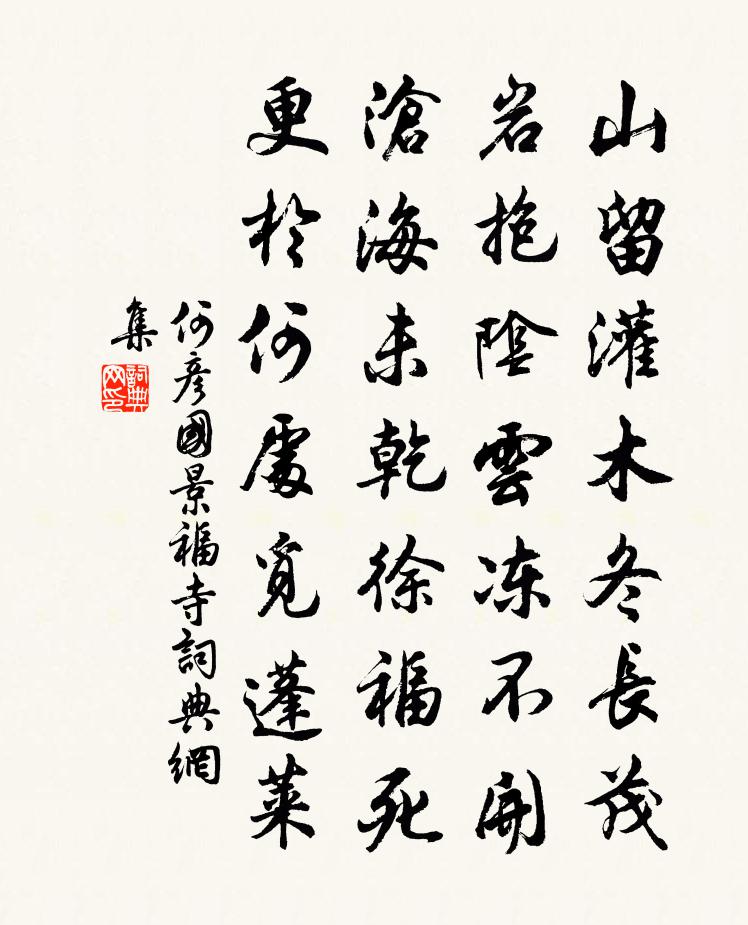 山留灌木冬長茂
岩抱陰雲冻不開
滄海未乾徐福死
更於何處覓蓬萊
何彥國景福寺詞典網
集
詞典
网印